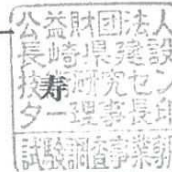 公益財団法人
長崎県建設
技術研究セン
ター理事長印
寿
試験調査事業部